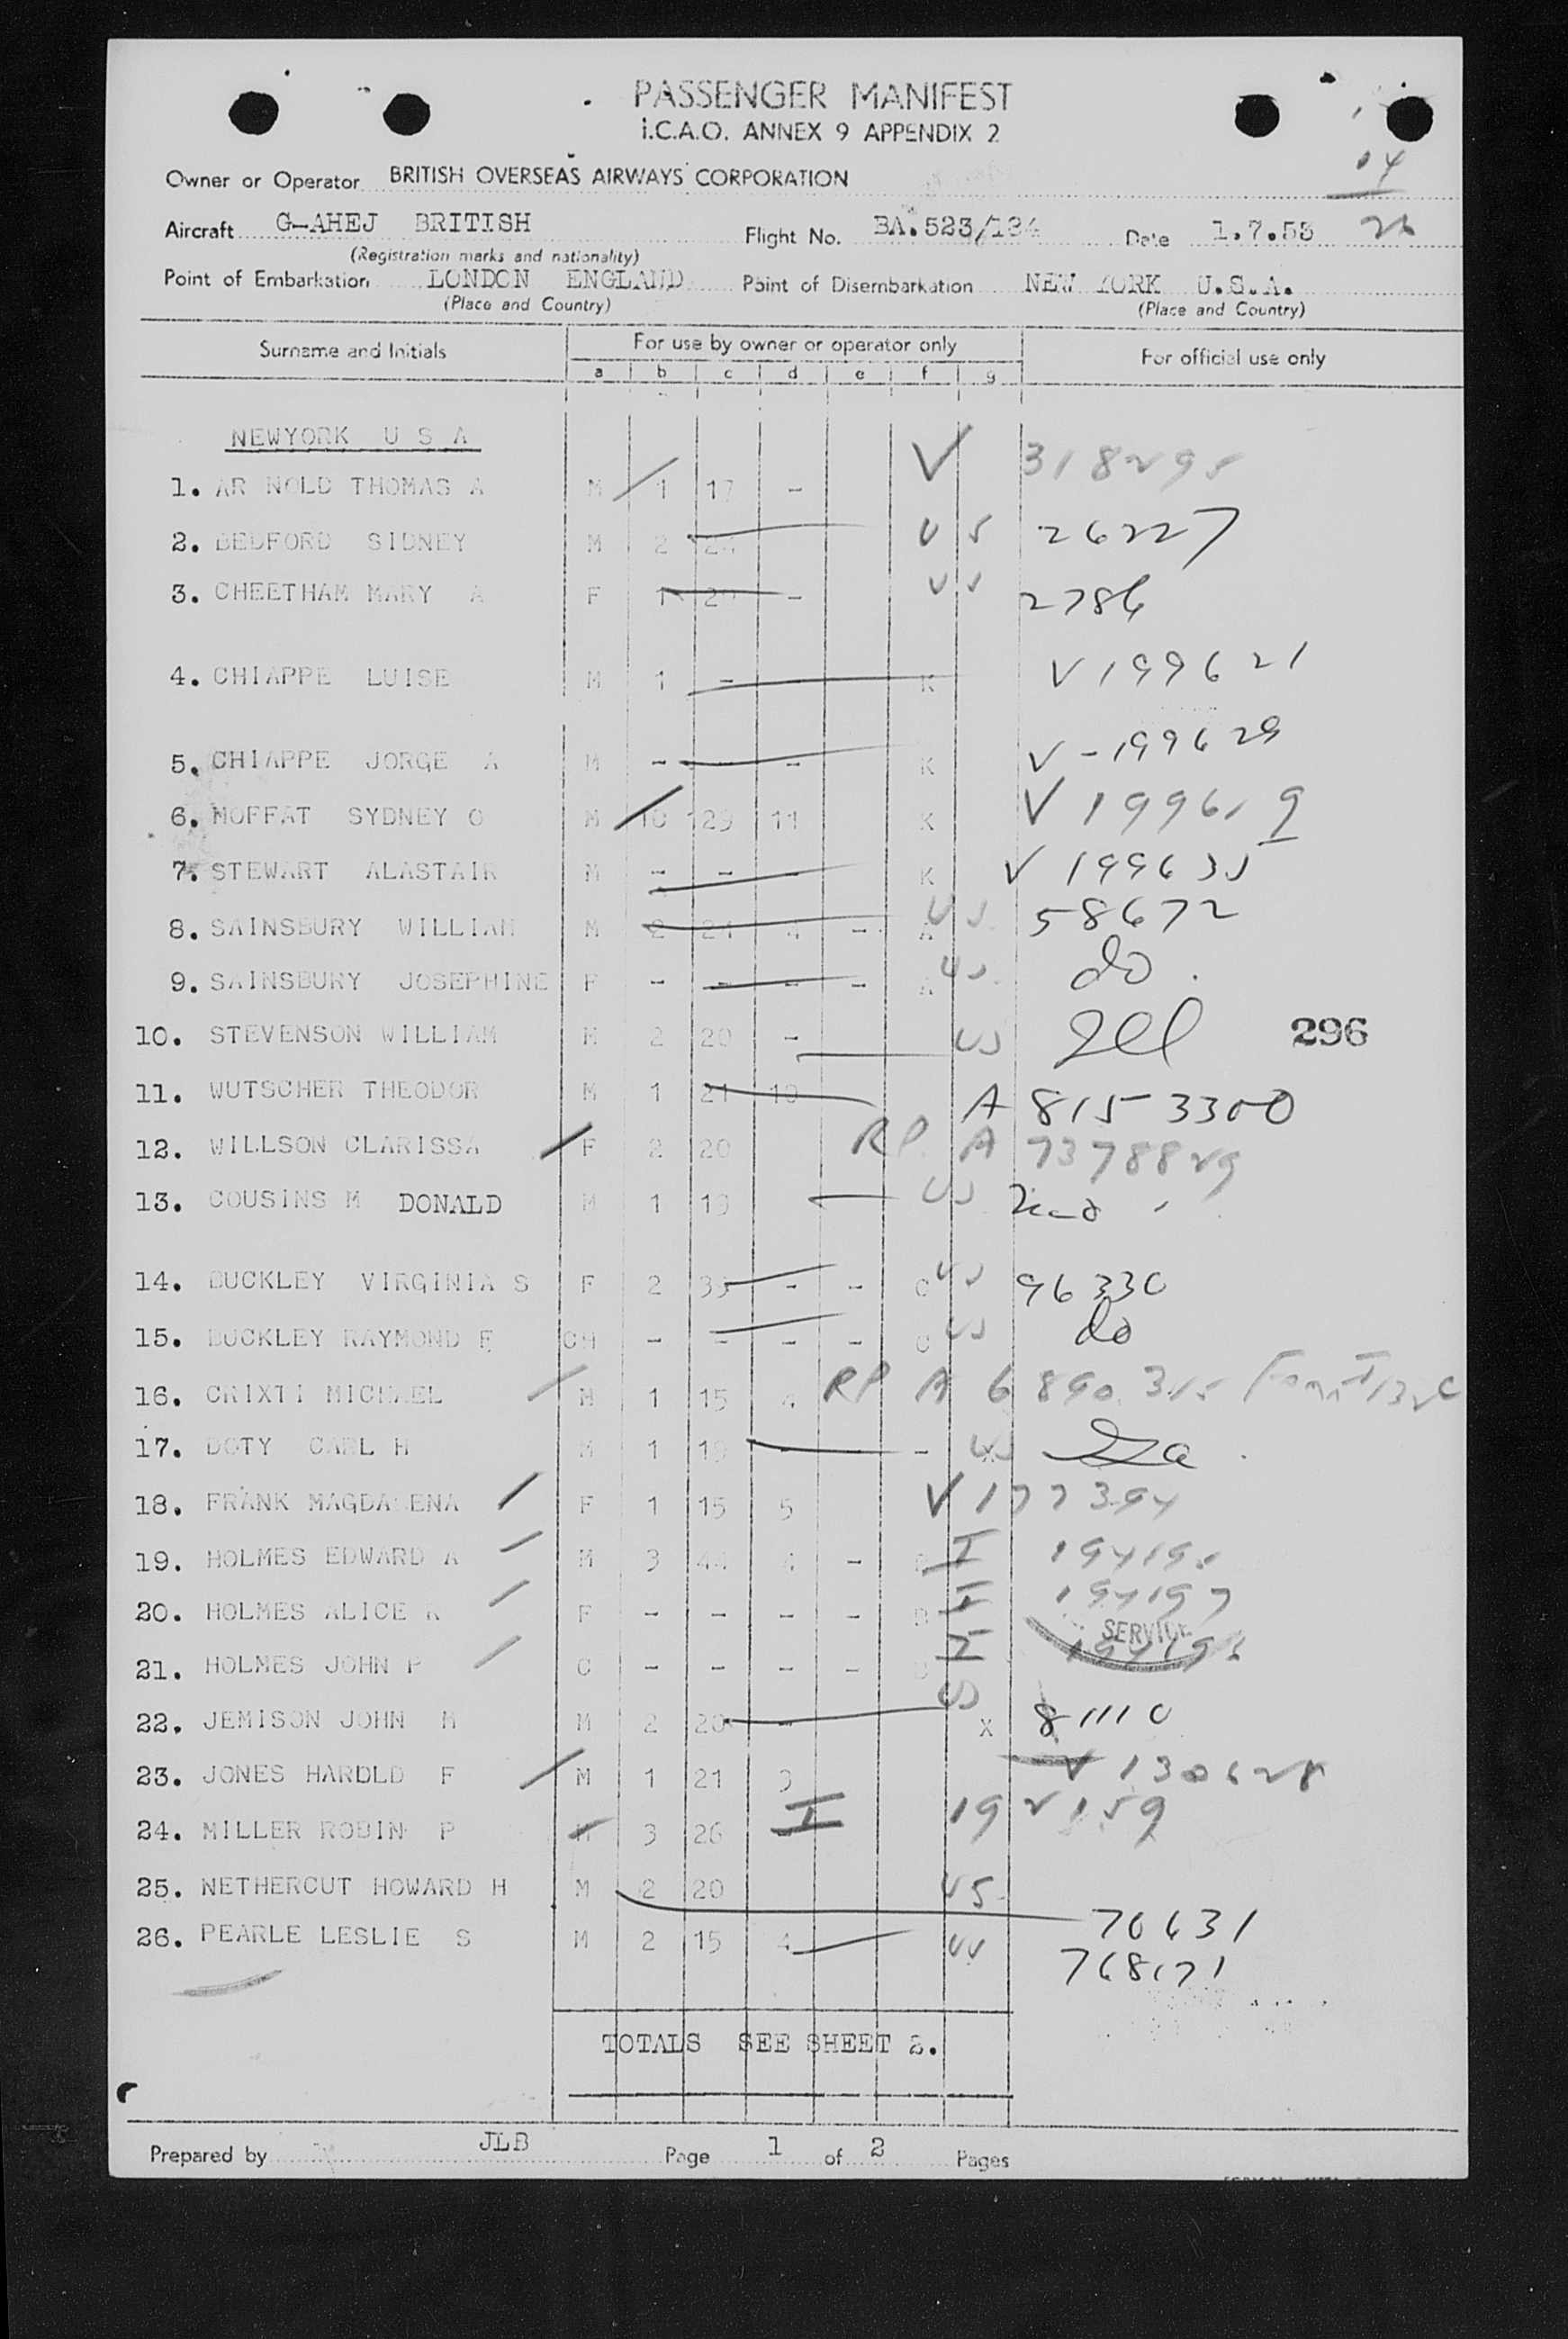 PASSENGER MANIFEST
I.C.A.O. ANNEX 9 APPENDIX 2
14
Owner or Operator BRITISH OVERSEAS AIRWAYS CORPORATION
Aircraft G-AHEJ BRITISH Flight No. BA.523/134 Date 1.7.53 26
(Registration marks and nationality)
Point of Embarkation LONDON ENGLAND Point of Disembarkation NEW YORK U.S.A.
(Place and Country) (Place and Country)
Surname and Initials For use by owner or operator only For official use only
a b c d e f g
NEWYORK U S A
1. AR NOLD THOMAS A M 1 17 - V
2. BEDFORD SIDNEY M 2 US 26227
3. CHEETHAM MARY A F 1 - US 2786
4. CHIAPPE LUISE M 1 - K V 199621
5. CHIAPPE JORGE A M - - - K V-199629
6. MOFFAT SYDNEY O M 10 129 11 K V 199619
7. STEWART ALASTAIR M - - - K V 199635
8. SAINSBURY WILLIAM M 2 24 4 - A US 58672
9. SAINSBURY JOSEPHINE F - - - - A US do.
10. STEVENSON WILLIAM M 2 20 - US 296
11. WUTSCHER THEODOR M 1 21 A 8153300
12. WILLSON CLARISSA F 2 20 RP A 7378829
13. COUSINS M DONALD M 1 19 US
14. BUCKLEY VIRGINIA S F 2 33 - - C US 96330
15. BUCKLEY RAYMOND F CH - - - - C US do
16. CRIXTI MICHAEL M 1 15 4 RP A 6890315
17. DOTY CARL H M 1 19 - - - US
18. FRANK MAGDALENA F 1 15 5 V 177394
19. HOLMES EDWARD A M 3 44 4 - I
20. HOLMES ALICE F - - - - I 194197
SERVICE
21. HOLMES JOHN P C - - - - I
22. JEMISON JOHN M M 2 20 - US X 81110
23. JONES HAROLD F M 1 21 3 V 130628
24. MILLER ROBIN P M 3 26 I 192159
25. NETHERCUT HOWARD H M 2 20 US 70631
26. PEARLE LESLIE S M 2 15 4 US 768171
TOTALS SEE SHEET 2.
Prepared by JLB Page 1 of 2 Pages